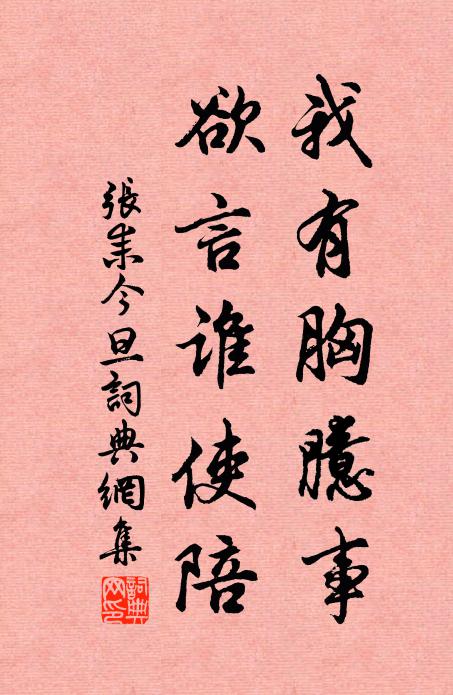 我有胸臆事
欲言谁使陪
張耒今旦詞典網集
詞典網印